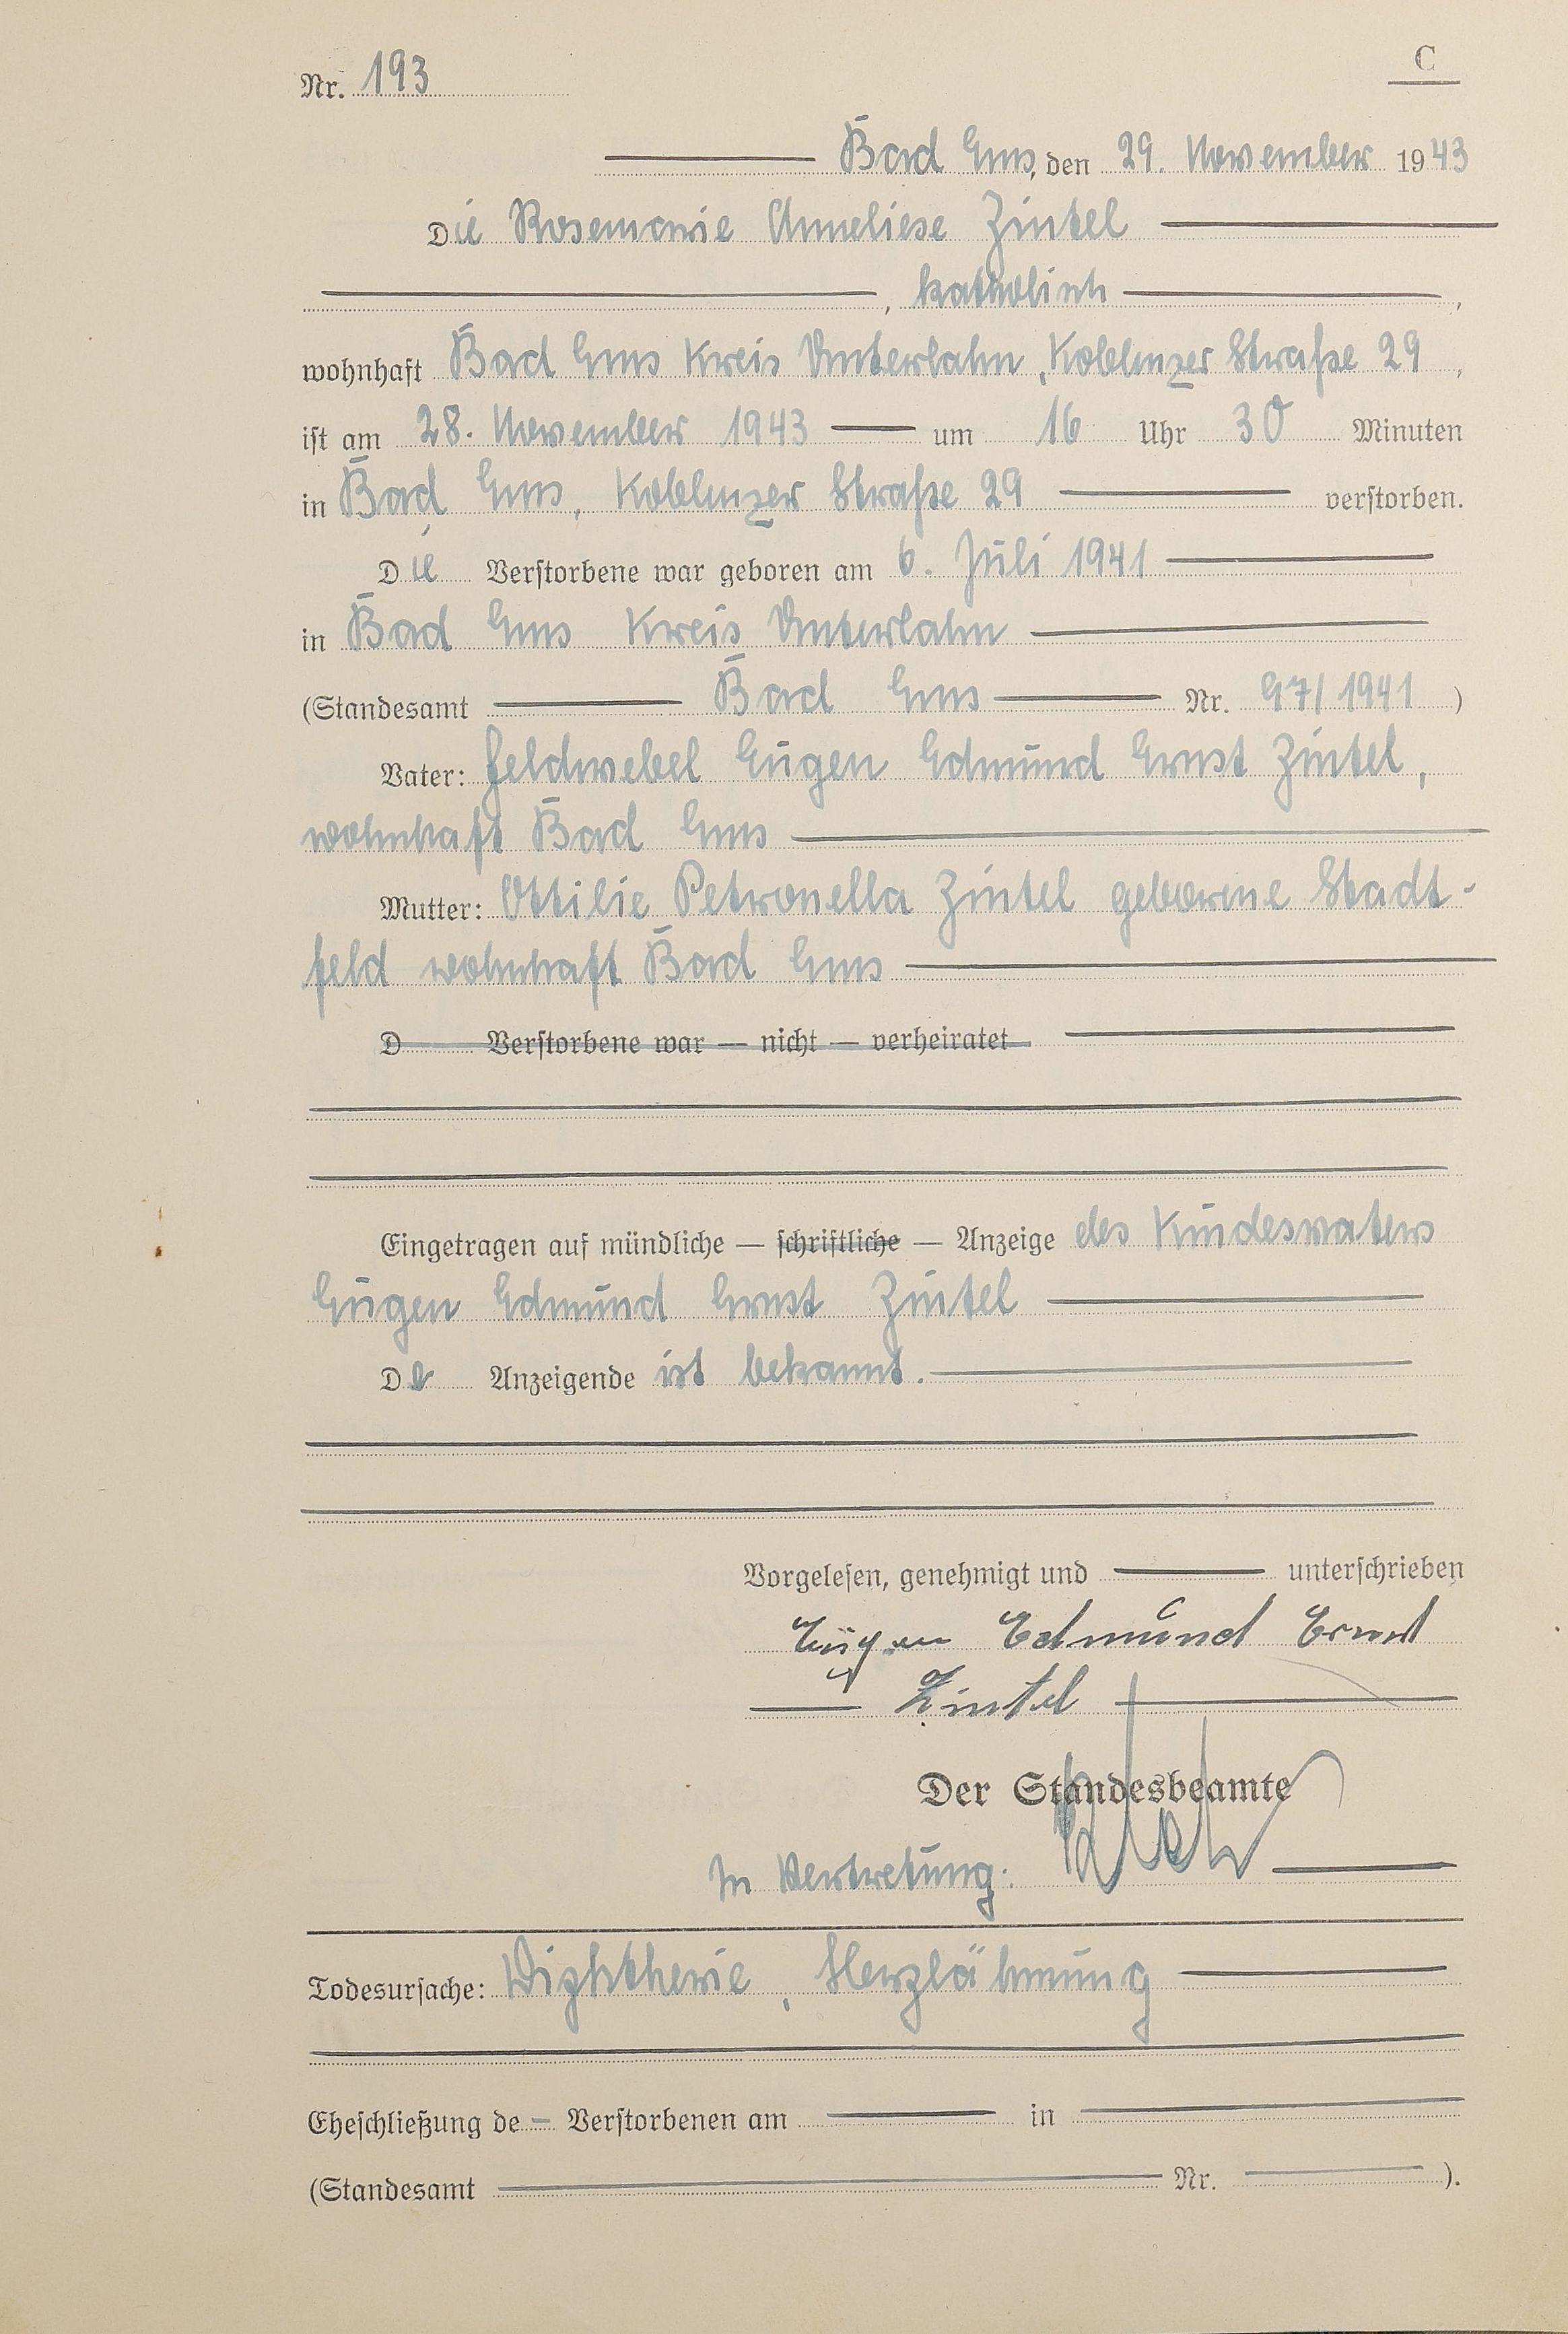 C
Nr. 193
Bad Ems, den 29. November 1943
Die Rosemarie Anneliese Zintel
, katholisch ,
wohnhaft Bad Ems Kreis Unterlahn, Koblenzer Straße 29 ,
ist am 28. November 1943 um 16 Uhr 30 Minuten
in Bad Ems, Koblenzer Straße 29 verstorben.
Die Verstorbene war geboren am 6. Juli 1941
in Bad Ems Kreis Unterlahn
(Standesamt Bad Ems Nr. 97/1941 )
Vater: Feldwebel Eugen Edmund Ernst Zintel,
wohnhaft Bad Ems
Mutter: Ottilie Petronella Zintel geborene Stadt-
feld wohnhaft Bad Ems
D Verstorbene war — nicht — verheiratet
Eingetragen auf mündliche — schriftliche — Anzeige des Kindesvaters
Eugen Edmund Ernst Zintel
Der Anzeigende ist bekannt.
Vorgelesen, genehmigt und unterschrieben
Eugen Edmund Ernst
Zintel
Der Standesbeamte
In Vertretung:
Todesursache: Diphtherie, Herzlähmung
Eheschließung de Verstorbenen am in
(Standesamt Nr. ).